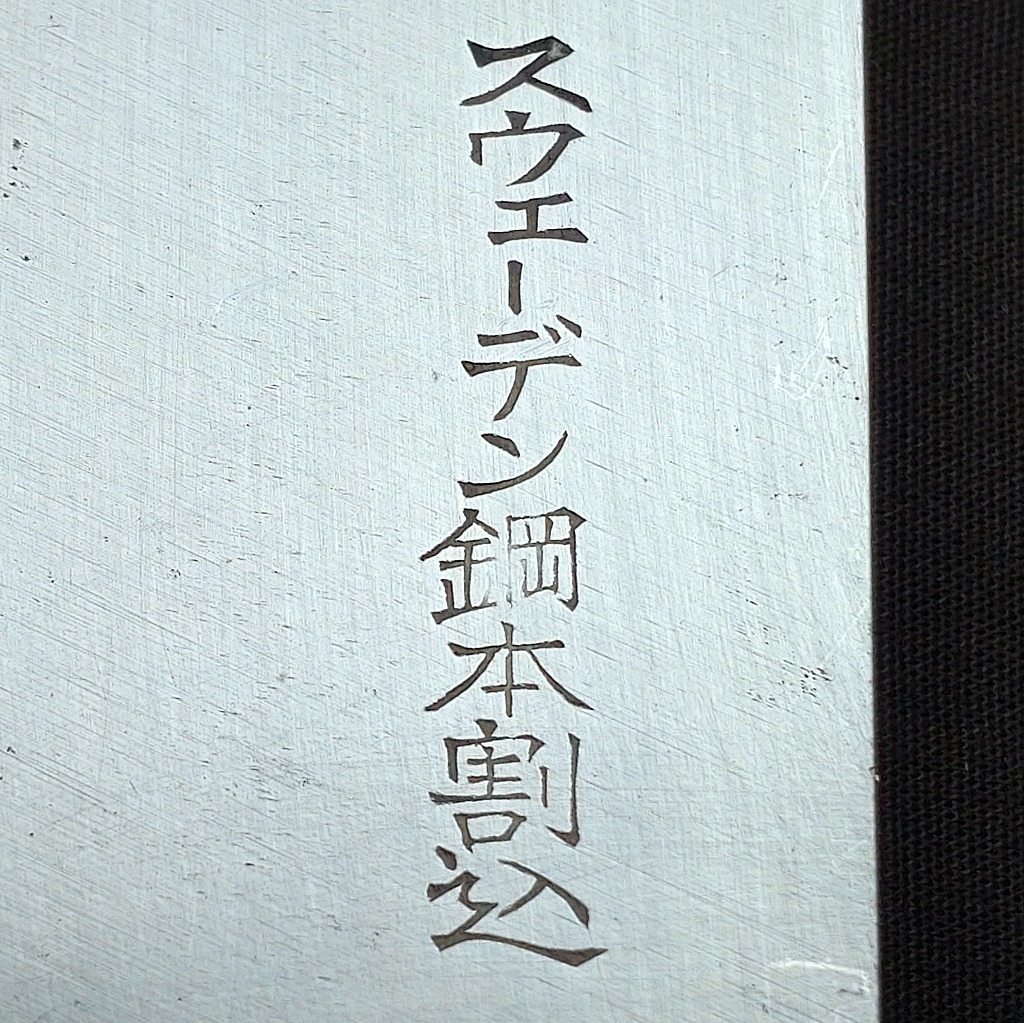 スウエーデン鋼本割込